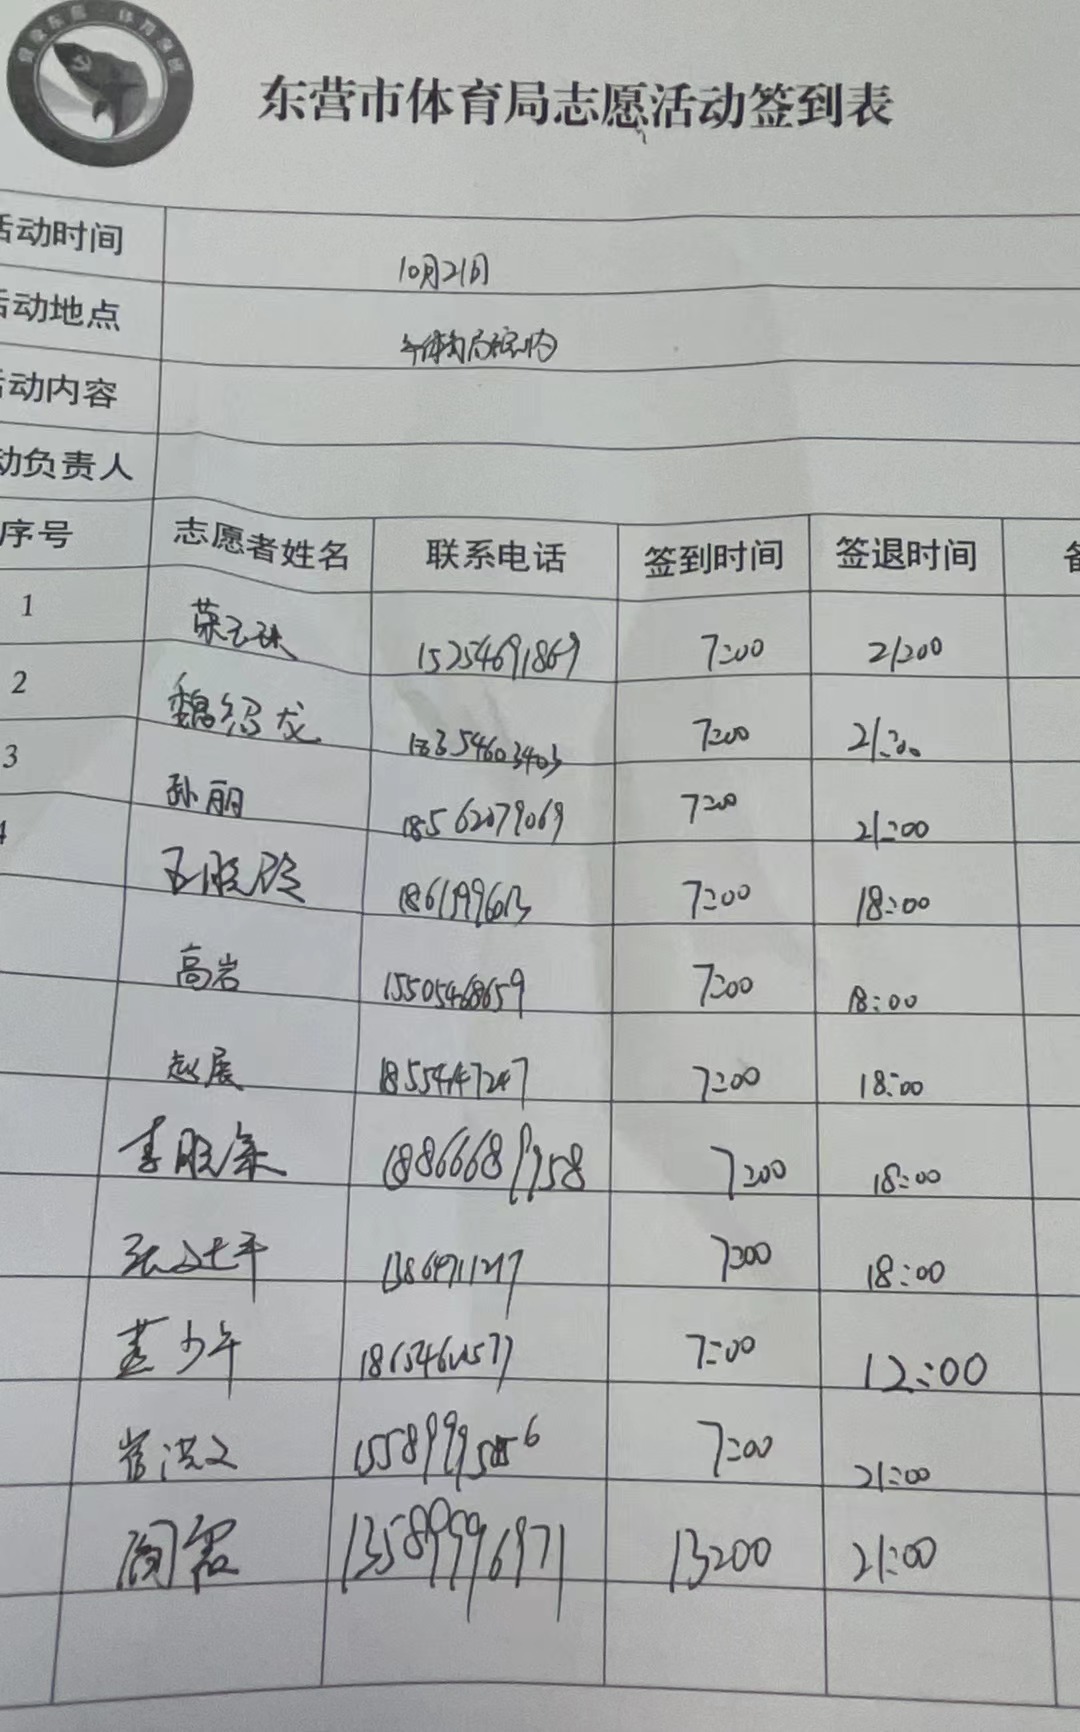 东营市体育局志愿活动签到表
活动时间 10月21日
活动地点 市体育局院内
活动内容
动负责人
序号 志愿者姓名 联系电话 签到时间 签退时间 备
1 荣玉珠 15254691869 7:00 21:00
2 魏绍龙 13354603403 7:00 21:00
3 孙丽 18562079069 7:00 21:00
4 7:00 18:00
高岩 15505468659 7:00 18:00
赵展 18554147247 7:00 18:00
李胜 7:00 18:00
7:00 18:00
少午 7:00 12:00
崔洪文 7:00 21:00
13589996971 13:00 21:00